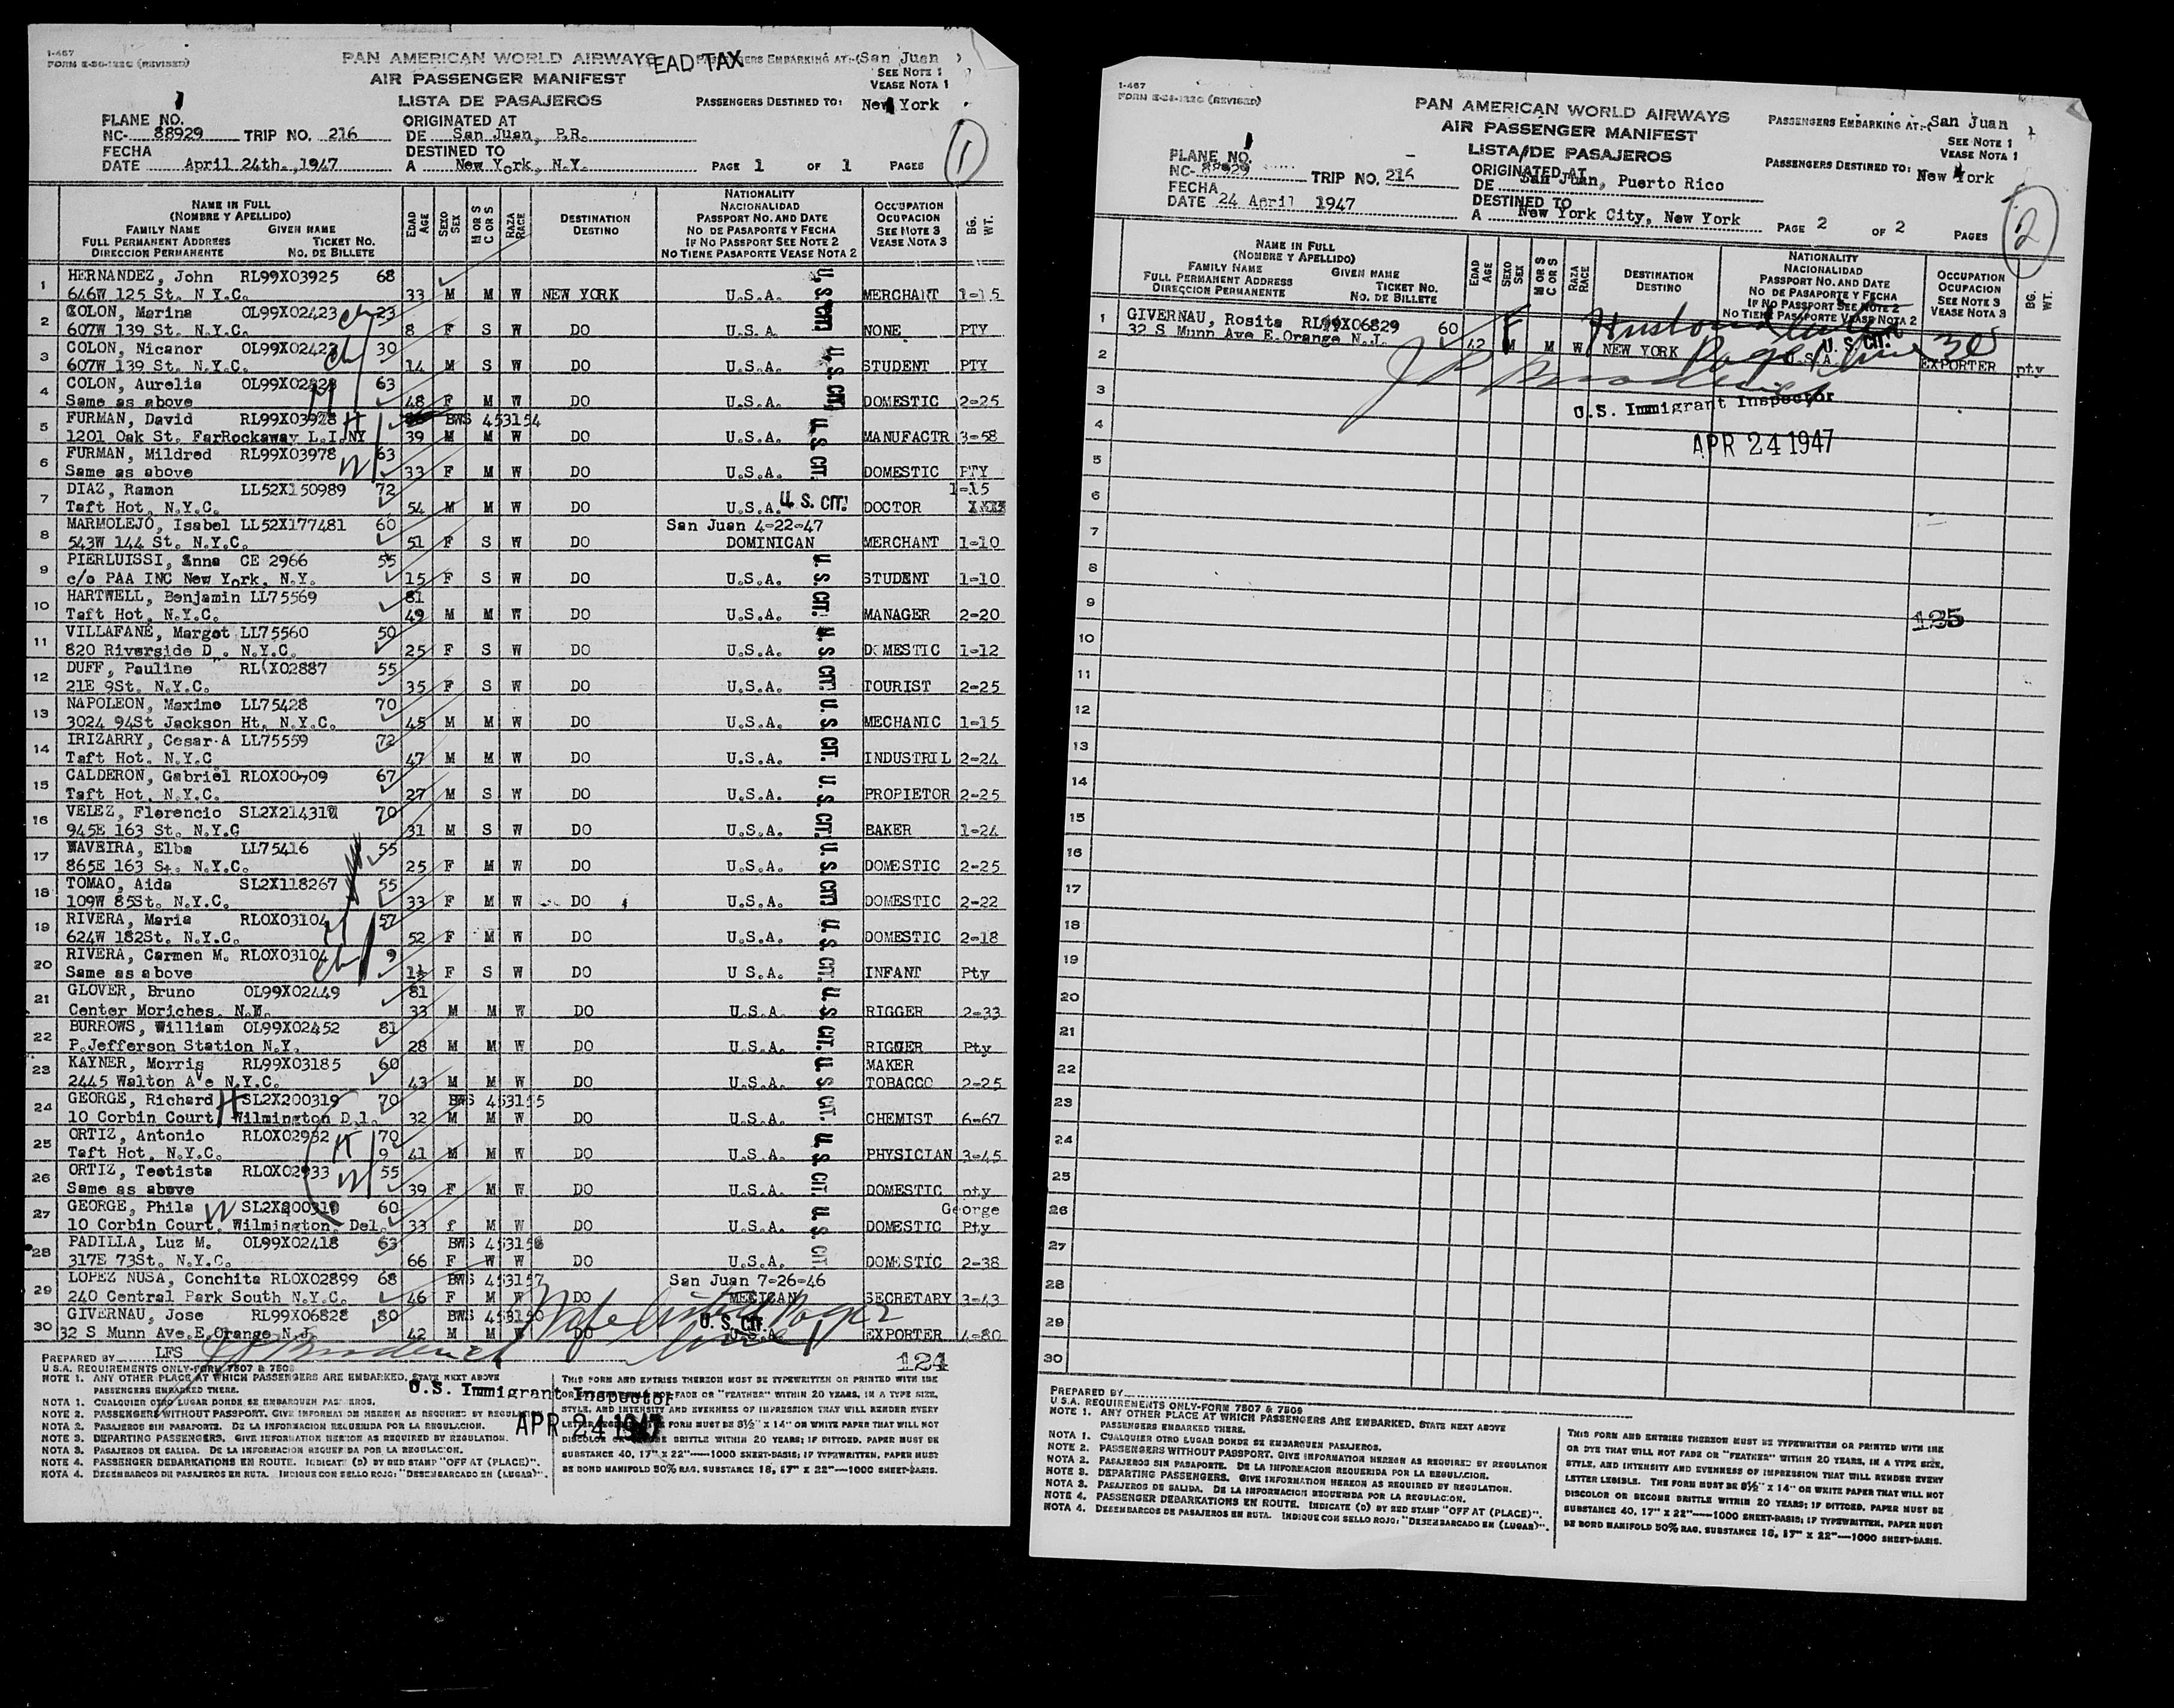 I-467
FORM E-36-122C (REVISED)
PAN AMERICAN WORLD AIRWAYS
EAD TAX
PASSENGERS EMBARKING AT:-(San Juan )
AIR PASSENGER MANIFEST
SEE NOTE 1
VEASE NOTA 1
LISTA DE PASAJEROS
PASSENGERS DESTINED TO: New York
PLANE NO.
NC- 88929 TRIP NO. 216
ORIGINATED AT
DE San Juan, P.R.
1
FECHA
DATE April 24th.,1947
DESTINED TO
A New York, N.Y.
PAGE 1 OF 1 PAGES
NAME IN FULL
(NOMBRE Y APELLIDO)
FAMILY NAME GIVEN NAME
FULL PERMANENT ADDRESS TICKET NO.
DIRECCION PERMANENTE NO. DE BILLETE
EDAD AGE
SEXO SEX
M OR S C OR S
RAZA RACE
DESTINATION
DESTINO
NATIONALITY
NACIONALIDAD
PASSPORT NO. AND DATE
NO DE PASAPORTE Y FECHA
IF NO PASSPORT SEE NOTE 2
NO TIENE PASAPORTE VEASE NOTA 2
OCCUPATION
OCUPACION
SEE NOTE 3
VEASE NOTA 3
BG. WT.
1 HERNANDEZ, John RL99X03925 68
646W 125 St. N Y.C. 33 M M W NEW YORK U.S.A. MERCHANT 1-15
2 COLON, Marina OL99X02423 ch 23
607W 139 St. N.Y.C. 8 F S W DO U.S.A NONE PTY
3 COLON, Nicanor OL99X02423 ch 30
607W 139 St. N.Y.C. 14 M S W DO U.S.A. STUDENT PTY
4 COLON, Aurelia 63
Same as above 48 F M W DO U.S.A. DOMESTIC 2-25
5 FURMAN, David RL99X03978 H BWS 453154
1201 Oak St. FarRockaway L.I.NY 39 M M W DO U.S.A. MANUFACTR 3-58
6 FURMAN, Mildred RL99X03978 63
Same as above W 33 F M W DO U.S.A. DOMESTIC PTY
7 DIAZ, Ramon LL52X150989 72 1-15
Taft Hot. N.Y.C. 54 M M W DO U.S.A. U.S. CIT. DOCTOR
8 MARMOLEJO, Isabel LL52X177481 60 San Juan 4-22-47
543W 144 St. N.Y.C. 51 F S W DO DOMINICAN MERCHANT 1-10
9 PIERLUISSI, Anna CE 2966 55
c/o PAA INC New York, N.Y. 15 F S W DO U.S.A. STUDENT 1-10
10 HARTWELL, Benjamin LL75569 81
Taft Hot. N.Y.C. 49 M M W DO U.S.A. MANAGER 2-20
11 VILLAFANE, Margot LL75560 50
820 Riverside D . N.Y.C. 25 F S W DO U.S.A. DOMESTIC 1-12
12 DUFF, Pauline 55
21E 9St. N.Y.C. 35 F S W DO U.S.A. TOURIST 2-25
13 NAPOLEON, Maximo LL75428 70
3024 94St Jackson Ht. N.Y.C. 45 M M W DO U.S.A. MECHANIC 1-15
14 IRIZARRY, Cesar A LL75559 72
Taft Hot. N.Y.C 47 M M W DO U.S.A. INDUSTRIL 2-24
15 CALDERON, Gabriel 67
Taft Hot. N.Y.C. 27 M S W DO U.S.A. PROPIETOR 2-25
16 VELEZ, Florencio 70
945E 163 St. N.Y.C 31 M S W DO U.S.A. BAKER 1-24
17 NAVEIRA, Elba LL75416 55
865E 163 St. N.Y.C. 25 F M W DO U.S.A. DOMESTIC 2-25
18 TOMAO, Aida SL2X118267 55
109W 85St. N.Y.C. 33 F M W DO U.S.A. DOMESTIC 2-22
19 RIVERA, Maria RLOX03104 52
624W 182St. N.Y.C. 52 F M W DO U.S.A. DOMESTIC 2-18
20 RIVERA, Carmen M. RLOX03104 ch 9
Same as above 1½ F S W DO U S.A. INFANT Pty
21 GLOVER, Bruno OL99X02449 81
Center Moriches. N.Y. 33 M M W DO U.S.A. RIGGER 2-33
22 BURROWS, William OL99X02452 81
P.Jefferson Station N.Y. 28 M M W DO U.S.A. RIGGER Pty
23 KAYNER, Morris RL99X03185 60 MAKER
2445 Walton Ave N.Y.C. 43 M M W DO U.S.A. TOBACCO 2-25
24 GEORGE, Richard H SL2X200319 70 BWS 453155
10 Corbin Court Wilmington D.l. 32 M M W DO U.S.A. CHEMIST 6-67
25 ORTIZ, Antonio RLOX02932 H 70
Taft Hot. N.Y.C. 9 41 M M W DO U.S.A. PHYSICIAN 3-45
26 ORTIZ, Teotista RLOX02933 W 55
Same as above 39 F M W DO U.S.A. DOMESTIC pty
27 GEORGE, Phila W 60 George
10 Corbin Court, Wilmington, Del. 33 f M W DO U.S.A. DOMESTIC Pty
28 PADILLA, Luz M. OL99X02418 63 BWS 453156
317E 73St. N.Y.C. 66 F W W DO U.S.A. DOMESTIC 2-38
29 LOPEZ NUSA, Conchita RLOX02899 68 BWS 453157 San Juan 7-26-46
240 Central Park South N.Y.C. 46 F M W DO MEXICAN SECRETARY 3-43
30 GIVERNAU, Jose RL99X06828 80 BWS
32 S Munn Ave.E.Orange N.J. 42 M M W DO U.S.A. EXPORTER 4-80
Wife listed Page
line 1
U. S. CIT.
U. S. CIT.
PREPARED BY LFS
124
U.S. Immigrant Inspector
APR 24 1947
U.S.A. REQUIREMENTS ONLY-FORM 7507 & 7509
NOTE 1. ANY OTHER PLACE AT WHICH PASSENGERS ARE EMBARKED, STATE NEXT ABOVE
PASSENGERS EMBARKED THERE.
NOTA 1. CUALQUIER OTRO LUGAR DONDE SE EMBARQUEN PASAJEROS.
NOTE 2. PASSENGERS WITHOUT PASSPORT. GIVE INFORMATION HEREON AS REQUIRED BY REGULATION
NOTA 2. PASAJEROS SIN PASAPORTE. DE LA INFORMACION REQUERIDA POR LA REGULACION.
NOTE 3. DEPARTING PASSENGERS. GIVE INFORMATION HEREON AS REQUIRED BY REGULATION.
NOTA 3. PASAJEROS DE SALIDA. DE LA INFORMACION REQUERIDA POR LA REGULACION.
NOTE 4. PASSENGER DEBARKATIONS EN ROUTE. INDICATE (D) BY RED STAMP "OFF AT (PLACE)".
NOTA 4. DESEMBARCOS DE PASAJEROS EN RUTA. INDIQUE CON SELLO ROJO: "DESEMBARCADO EN (LUGAR)".
THIS FORM AND ENTRIES THEREON MUST BE TYPEWRITTEN OR PRINTED WITH INK
OR DYE THAT WILL NOT FADE OR "FEATHER" WITHIN 20 YEARS, IN A TYPE SIZE,
STYLE, AND INTENSITY AND EVENNESS OF IMPRESSION THAT WILL RENDER EVERY
LETTER LEGIBLE. THE FORM MUST BE 8½" X 14" ON WHITE PAPER THAT WILL NOT
DISCOLOR OR BECOME BRITTLE WITHIN 20 YEARS; IF DITTOED, PAPER MUST BE
SUBSTANCE 40, 17" X 22"——1000 SHEET-BASIS; IF TYPEWRITTEN, PAPER MUST
BE BOND MANIFOLD 50% RAG, SUBSTANCE 16, 17" X 22"—1000 SHEET-BASIS.
I-467
FORM E-36-122C (REVISED)
PAN AMERICAN WORLD AIRWAYS
PASSENGERS EMBARKING AT:-(San Juan )
AIR PASSENGER MANIFEST
SEE NOTE 1
VEASE NOTA 1
LISTA DE PASAJEROS
PASSENGERS DESTINED TO: New York
PLANE NO.
NC- 88929 TRIP NO. 216
ORIGINATED AT
DE San Juan, Puerto Rico
FECHA
DATE 24 April 1947
DESTINED TO
A New York City, New York
PAGE 2 OF 2 PAGES
2
NAME IN FULL
(NOMBRE Y APELLIDO)
FAMILY NAME GIVEN NAME
FULL PERMANENT ADDRESS TICKET NO.
DIRECCION PERMANENTE NO. DE BILLETE
EDAD AGE
SEXO SEX
M OR S C OR S
RAZA RACE
DESTINATION
DESTINO
NATIONALITY
NACIONALIDAD
PASSPORT NO. AND DATE
NO DE PASAPORTE Y FECHA
IF NO PASSPORT SEE NOTE 2
NO TIENE PASAPORTE VEASE NOTA 2
OCCUPATION
OCUPACION
SEE NOTE 3
VEASE NOTA 3
BG. WT.
1 GIVERNAU, Rosita RL99X06829 60 F Husband listed
32 S Munn Ave E.Orange N.J. 42 M M W NEW YORK U.S.A. EXPORTER pty
Page 1 line 30
U. S. CIT.
2
3
U.S. Immigrant Inspector
4
APR 24 1947
5
6
7
8
9
125
10
11
12
13
14
15
16
17
18
19
20
21
22
23
24
25
26
27
28
29
30
PREPARED BY
U.S.A. REQUIREMENTS ONLY-FORM 7507 & 7509
NOTE 1. ANY OTHER PLACE AT WHICH PASSENGERS ARE EMBARKED, STATE NEXT ABOVE
PASSENGERS EMBARKED THERE.
NOTA 1. CUALQUIER OTRO LUGAR DONDE SE EMBARQUEN PASAJEROS.
NOTE 2. PASSENGERS WITHOUT PASSPORT. GIVE INFORMATION HEREON AS REQUIRED BY REGULATION
NOTA 2. PASAJEROS SIN PASAPORTE. DE LA INFORMACION REQUERIDA POR LA REGULACION.
NOTE 3. DEPARTING PASSENGERS. GIVE INFORMATION HEREON AS REQUIRED BY REGULATION.
NOTA 3. PASAJEROS DE SALIDA. DE LA INFORMACION REQUERIDA POR LA REGULACION.
NOTE 4. PASSENGER DEBARKATIONS EN ROUTE. INDICATE (D) BY RED STAMP "OFF AT (PLACE)".
NOTA 4. DESEMBARCOS DE PASAJEROS EN RUTA. INDIQUE CON SELLO ROJO: "DESEMBARCADO EN (LUGAR)".
THIS FORM AND ENTRIES THEREON MUST BE TYPEWRITTEN OR PRINTED WITH INK
OR DYE THAT WILL NOT FADE OR "FEATHER" WITHIN 20 YEARS, IN A TYPE SIZE,
STYLE, AND INTENSITY AND EVENNESS OF IMPRESSION THAT WILL RENDER EVERY
LETTER LEGIBLE. THE FORM MUST BE 8½" X 14" ON WHITE PAPER THAT WILL NOT
DISCOLOR OR BECOME BRITTLE WITHIN 20 YEARS; IF DITTOED, PAPER MUST BE
SUBSTANCE 40, 17" X 22"——1000 SHEET-BASIS; IF TYPEWRITTEN, PAPER MUST
BE BOND MANIFOLD 50% RAG, SUBSTANCE 16, 17" X 22"—1000 SHEET-BASIS.